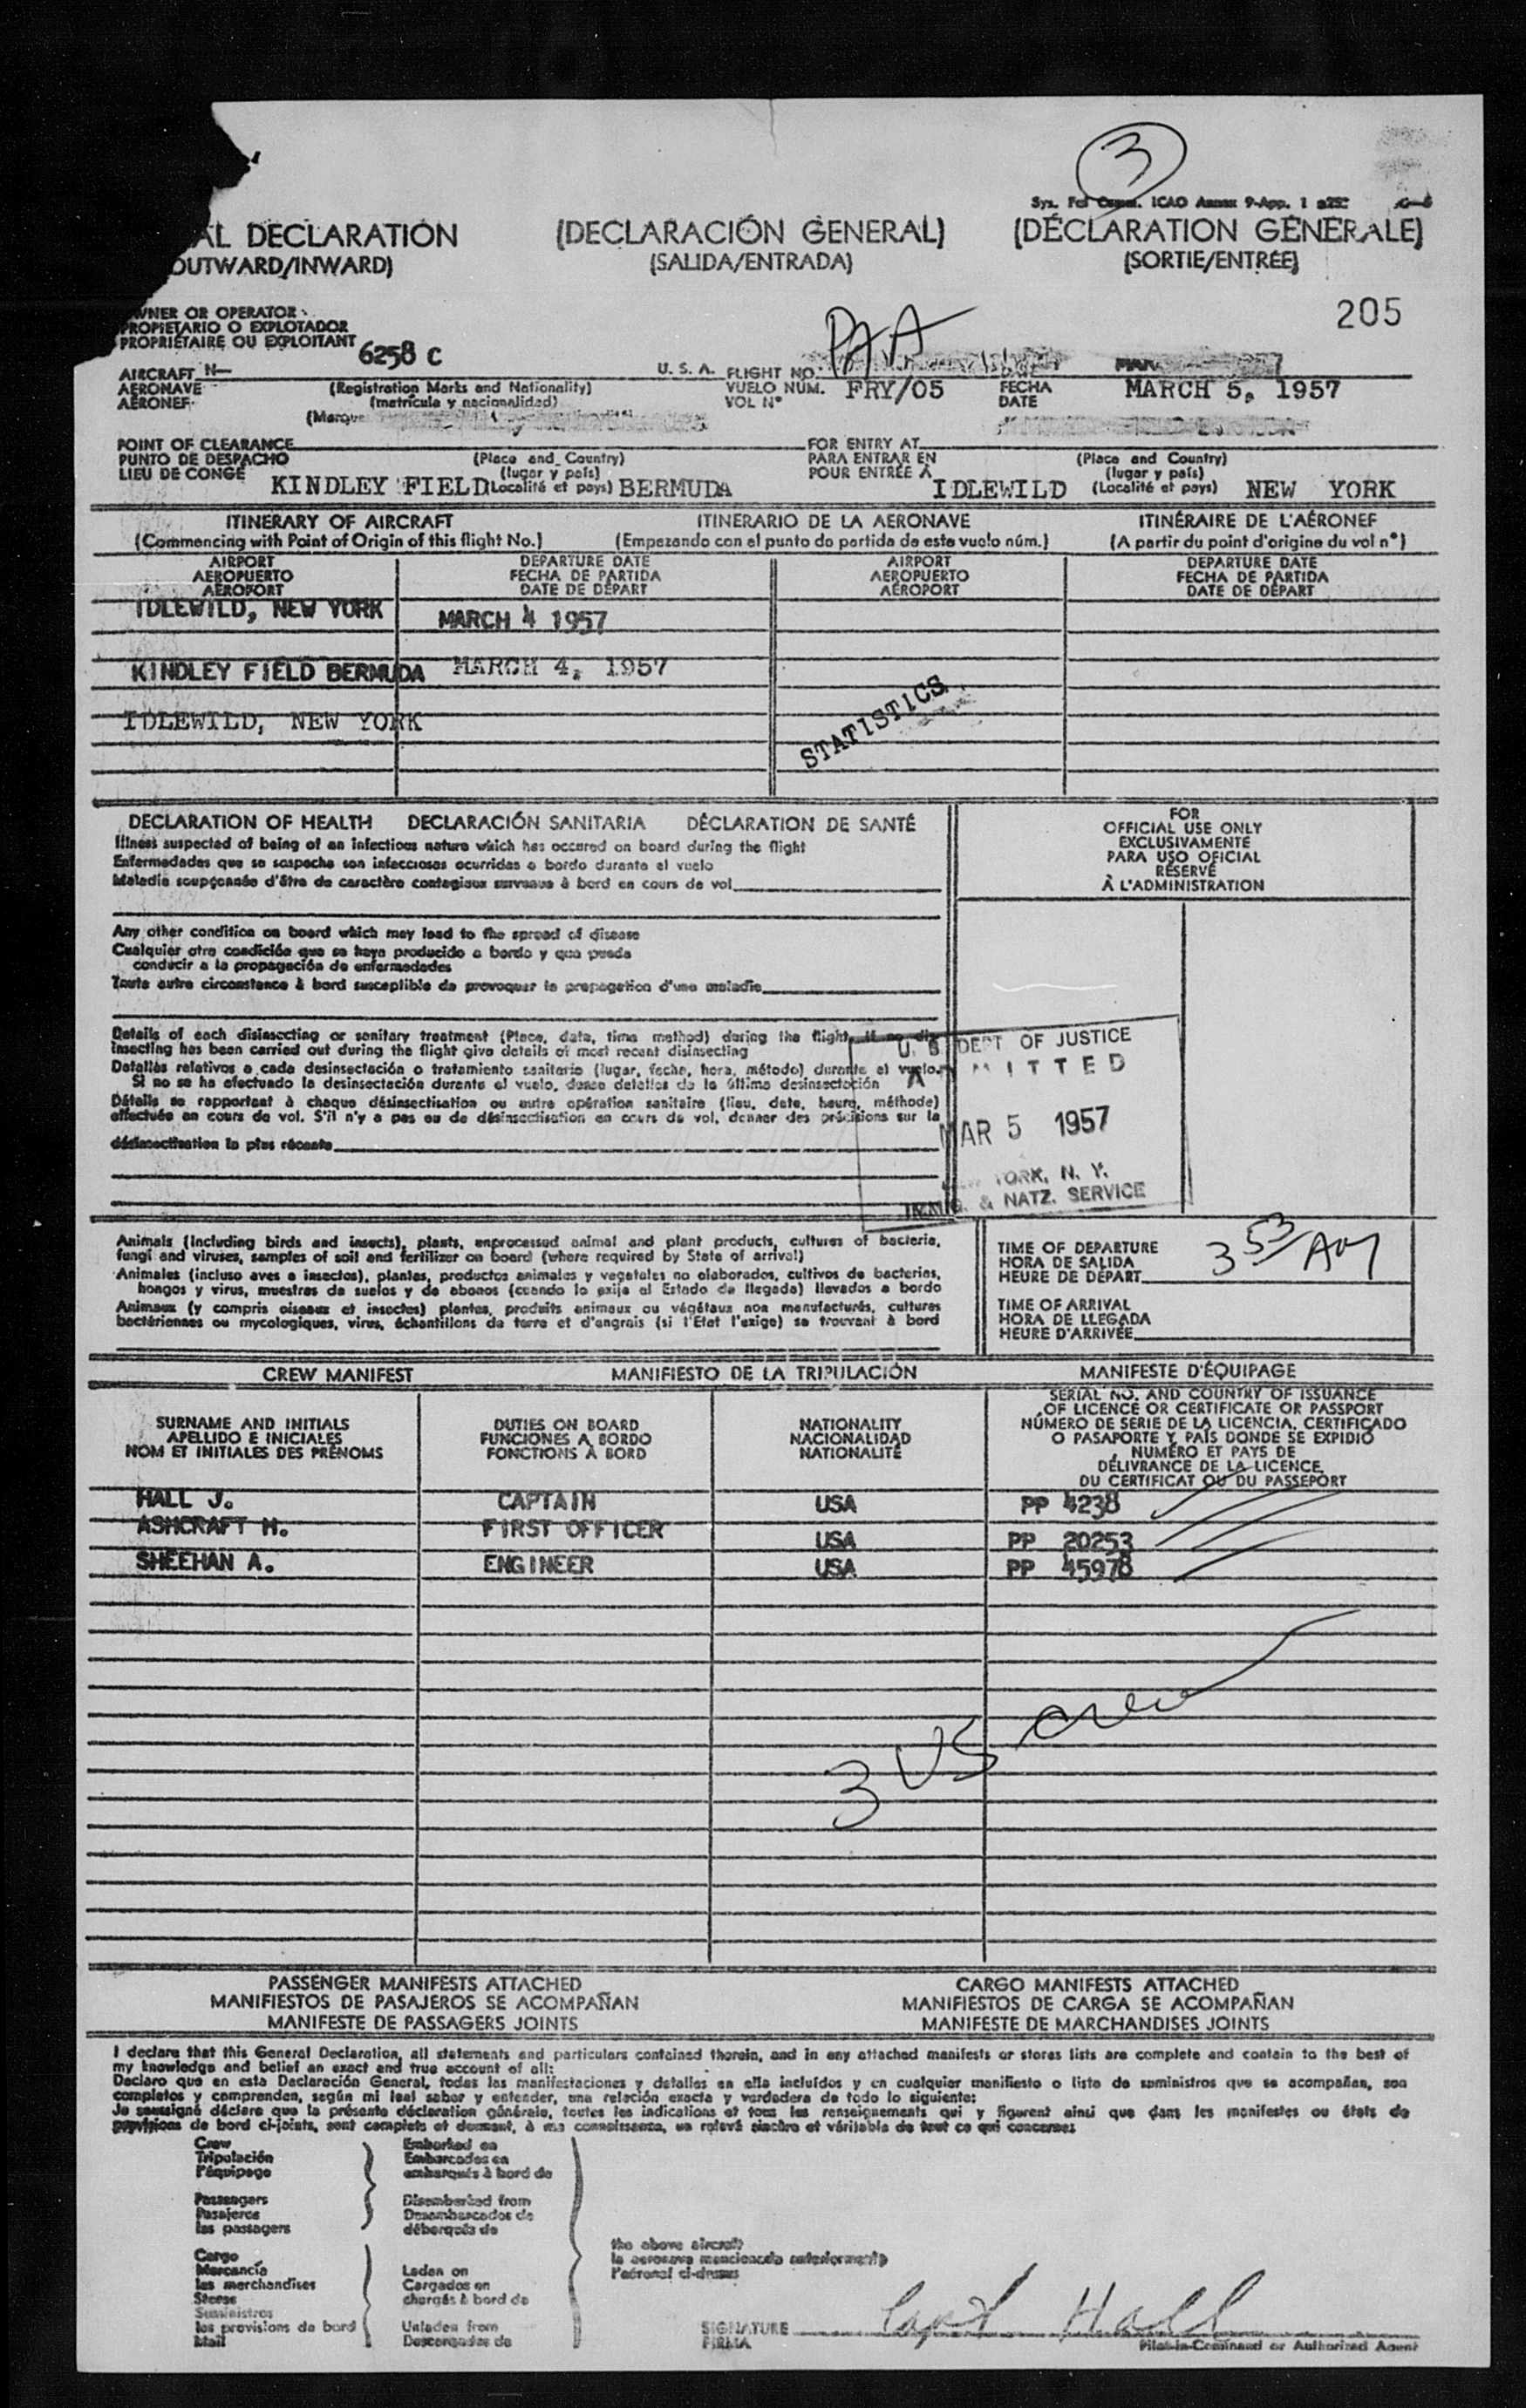 3
Sys. Fol Comm. ICAO Annex 9-App. 1
AL DECLARATION (DECLARACIÓN GENERAL) (DÉCLARATION GÉNÉRALE)
OUTWARD/INWARD) (SALIDA/ENTRADA) (SORTIE/ENTRÉE)
205
WNER OR OPERATOR
PROPIETARIO O EXPLOTADOR
PROPRIÉTAIRE OU EXPLOITANT
PAA
6258 C
AIRCRAFT N— U. S. A. FLIGHT NO. MAR.
AERONAVE (Registration Marks and Nationality) VUELO NÚM. FRY/05 FECHA MARCH 5, 1957
AÉRONEF (matrícula y nacionalidad) VOL Nº DATE
(Marque
POINT OF CLEARANCE FOR ENTRY AT
PUNTO DE DESPACHO (Place and Country) PARA ENTRAR EN (Place and Country)
LIEU DE CONGÉ (lugar y país) POUR ENTRÉE À (lugar y país)
KINDLEY FIELD (Localité et pays) BERMUDA IDLEWILD (Localité et pays) NEW YORK
ITINERARY OF AIRCRAFT ITINERARIO DE LA AERONAVE ITINÉRAIRE DE L'AÉRONEF
(Commencing with Point of Origin of this flight No.) (Empezando con el punto do partida de este vuelo núm.) (A partir du point d'origine du vol n°)
AIRPORT DEPARTURE DATE AIRPORT DEPARTURE DATE
AEROPUERTO FECHA DE PARTIDA AEROPUERTO FECHA DE PARTIDA
AÉROPORT DATE DE DÉPART AÉROPORT DATE DE DÉPART
IDLEWILD, NEW YORK MARCH 4 1957
KINDLEY FIELD BERMUDA MARCH 4, 1957
IDLEWILD, NEW YORK
STATISTICS
DECLARATION OF HEALTH DECLARACIÓN SANITARIA DÉCLARATION DE SANTÉ
Illness suspected of being of an infectious nature which has occured on board during the flight
Enfermedades que se sospecha son infecciosas ocurridas a bordo durante el vuelo
Maladie soupçonnée d'être de caractère contagieux survenue à bord en cours de vol
FOR
OFFICIAL USE ONLY
EXCLUSIVAMENTE
PARA USO OFICIAL
RÉSERVÉ
À L'ADMINISTRATION
Any other condition on board which may lead to the spread of disease
Cualquier otra condición que se haya producido a bordo y que pueda
conducir a la propagación de enfermedades
Toute autre circonstance à bord susceptible de provoquer la propagation d'une maladie
Details of each disinsecting or sanitary treatment (Place, date, time method) during the flight. If no dis-
insecting has been carried out during the flight give details of most recent disinsecting
Detalles relativos a cada desinsectación o tratamiento sanitario (lugar, fecha, hora, método) durante el vuelo.
Si no se ha efectuado la desinsectación durante el vuelo, dense detalles de la última desinsectación
Détails se rapportant à chaque désinsectisation ou autre opération sanitaire (lieu, date, heure, méthode)
effectuée en cours de vol. S'il n'y a pas eu de désinsectisation en cours de vol, donner des précisions sur la
désinsectisation la plus récente
U. S. DEPT OF JUSTICE
A MITTED
MAR 5 1957
YORK, N. Y.
IMMIG. & NATZ. SERVICE
Animals (including birds and insects), plants, unprocessed animal and plant products, cultures of bacteria,
fungi and viruses, samples of soil and fertilizer on board (where required by State of arrival)
Animales (incluso aves e insectos), plantas, productos animales y vegetales no elaborados, cultivos de bacterias,
hongos y virus, muestras de suelos y de abonos (cuando lo exija el Estado de llegada) llevados a bordo
Animaux (y compris oiseaux et insectes) plantes, produits animaux ou végétaux non manufacturés, cultures
bactériennes ou mycologiques, virus, échantillons de terre et d'engrais (si l'Etat l'exige) se trouvant à bord
TIME OF DEPARTURE
HORA DE SALIDA
HEURE DE DÉPART 353 AM
TIME OF ARRIVAL
HORA DE LLEGADA
HEURE D'ARRIVÉE
CREW MANIFEST MANIFIESTO DE LA TRIPULACIÓN MANIFESTE D'ÉQUIPAGE
SURNAME AND INITIALS
APELLIDO E INICIALES
NOM ET INITIALES DES PRÉNOMS
DUTIES ON BOARD
FUNCIONES A BORDO
FONCTIONS À BORD
NATIONALITY
NACIONALIDAD
NATIONALITÉ
SERIAL NO. AND COUNTRY OF ISSUANCE
OF LICENCE OR CERTIFICATE OR PASSPORT
NÚMERO DE SERIE DE LA LICENCIA, CERTIFICADO
O PASAPORTE Y PAÍS DONDE SE EXPIDIÓ
NUMÉRO ET PAYS DE
DÉLIVRANCE DE LA LICENCE
DU CERTIFICAT OU DU PASSEPORT
HALL J. CAPTAIN USA PP 4238
ASHCRAFT H. FIRST OFFICER USA PP 20253
SHEEHAN A. ENGINEER USA PP 45978
3 US crew
PASSENGER MANIFESTS ATTACHED CARGO MANIFESTS ATTACHED
MANIFIESTOS DE PASAJEROS SE ACOMPAÑAN MANIFIESTOS DE CARGA SE ACOMPAÑAN
MANIFESTE DE PASSAGERS JOINTS MANIFESTE DE MARCHANDISES JOINTS
I declare that this General Declaration, all statements and particulars contained therein, and in any attached manifests or stores lists are complete and contain to the best of
my knowledge and belief an exact and true account of all:
Declaro que en esta Declaración General, todas las manifestaciones y detalles en ella incluídos y en cualquier manifiesto o lista de suministros que se acompañan, son
completos y comprenden, según mi leal saber y entender, una relación exacta y verdadera de todo lo siguiente:
Je soussigné déclare que la présente déclaration générale, toutes les indications et tous les renseignements qui y figurent ainsi que dans les manifestes ou états de
provisions de bord ci-joints, sont complets et donnent, à ma connaissance, un relevé sincère et véritable de tout ce qui concerne:
Crew
Tripulación
l'équipage
Embarked on
Embarcados en
embarqués à bord de
Passengers
Pasajeros
les passagers
Disembarked from
Desembarcados de
débarqués de
Cargo
Mercancía
les merchandises
Stores
Suministros
les provisions de bord
Mail
Laden on
Cargados en
chargés à bord de
Unladen from
Descargados de
the above aircraft
la aeronave mencionada anteriormente
l'aéronef ci-dessus
SIGNATURE Capt Hall
FIRMA Pilot-in-Command or Authorized Agent